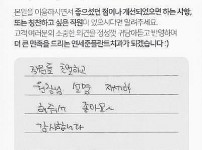 본원을 이용하시면서 좋으셨던 점이나 개선되었으면 하는 사항,
또는 칭찬하고 싶은 직원이 있으시다면 말씀해주세요.
고객 여러분의 소중한 의견을 정성껏 귀담아듣고 반영하여
더 큰 만족을 드리는 연세준플란트치과가 되겠습니다 :)
직원들 친절하고
원장님 설명 자세히
해주셔서 좋아요
감사합니다